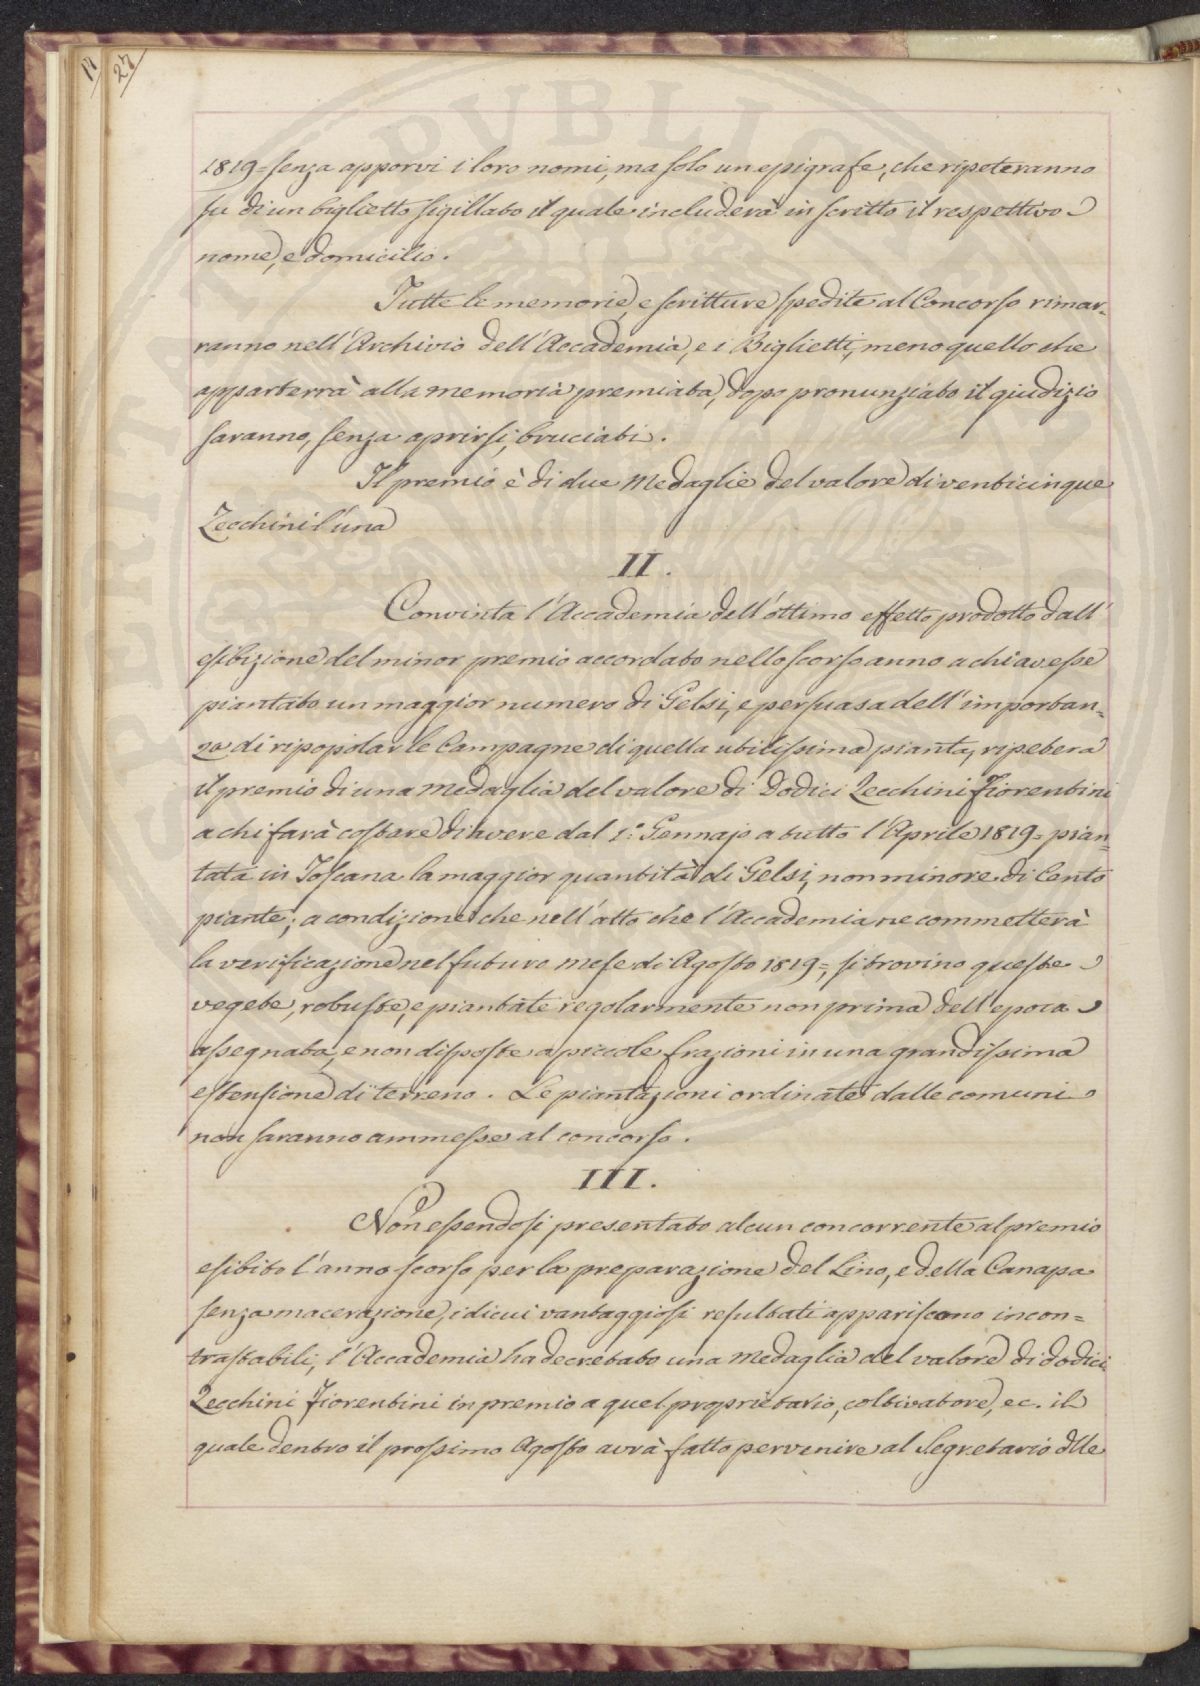 27
1819= senza apporvi i loro nomi, ma solo un epigrafe, che ripeteranno
su di un biglietto sigillato il quale includerà in scritto il respettivo
nome, e domicilio.
Tutte le memorie, e scritture spedite al Concorso rimar-
ranno nell'Archivio dell'Accademia, e i Biglietti, meno quello che
apparterrà alla memoria premiata, dopo pronunziato il giudizio
saranno, senza aprirsi, bruciati.
Il premio è di due Medaglie del valore di venticinque
Zecchini l'una
II.
Convinta l'Accademia dell'ottimo effetto prodotto dall'
esibizione del minor premio accordato nello scorso anno a chi avesse
piantato un maggior numero di Gelsi, e persuasa dell'importan=
za di ripopolar le Campagne di quella utilissima pianta, ripeterà
il premio di una Medaglia del valore di Dodici Zecchini Fiorentini
a chi farà costare di avere dal 1.° Gennajo a tutto l'Aprile 1819= pian=
tata in Toscana la maggior quantità di Gelsi, non minore di Cento
piante; a condizione che nell'atto che l'Accademia ne commetterà
la verificazione nel futuro mese di Agosto 1819=, si trovino queste
vegete, robuste, e piantate regolarmente non prima dell'epoca
assegnata, e non disposte a piccole frazioni in una grandissima
estensione di terreno. Le piantazioni ordinate dalle comuni
non saranno ammesse al concorso.
III.
Non essendosi presentato alcun concorrente al premio
esibito l'anno scorso, per la preparazione del Lino, e della Canapa
senza macerazione, i di cui vantaggiosi resultati appariscono incon=
trastabili, l'Accademia ha decretato una Medaglia del valore di dodici
Zecchini Fiorentini in premio a quel proprietario, coltivatore, ec. il
quale dentro il prossimo Agosto avrà fatto pervenire al Segretario dlle